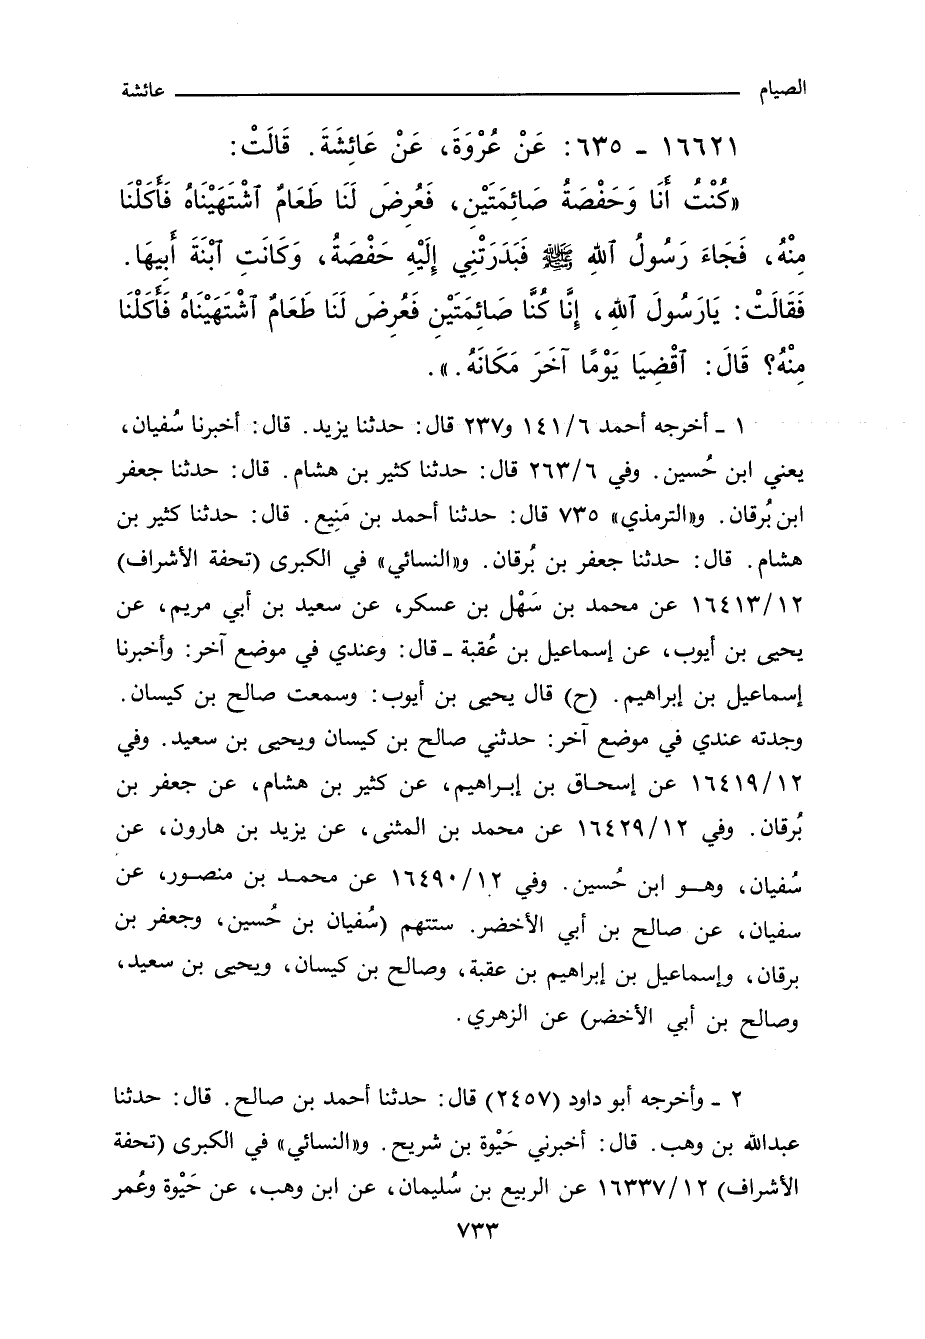 الصيام عائشة
١٦٦٢١ - ٦٣٥: عَنْ عُرْوَةَ، عَنْ عَائِشَةَ. قَالَتْ:
«كُنْتُ أَنَا وَحَفْصَةُ صَائِمَتَيْنِ، فَعُرِضَ لَنَا طَعَامٌ ٱشْتَهَيْنَاهُ فَأَكَلْنَا
مِنْهُ، فَجَاءَ رَسُولُ ٱللهِ ﷺ فَبَدَرَتْنِي إِلَيْهِ حَفْصَةُ، وَكَانَتِ ٱبْنَةَ أَبِيهَا.
فَقَالَتْ: يَارَسُولَ ٱللهِ، إِنَّا كُنَّا صَائِمَتَيْنِ فَعُرِضَ لَنَا طَعَامٌ ٱشْتَهَيْنَاهُ فَأَكَلْنَا
مِنْهُ؟ قَالَ: ٱقْضِيَا يَوْمًا آخَرَ مَكَانَهُ.».
١ - أخرجه أحمد ١٤١/٦ و٢٣٧ قال: حدثنا يزيد. قال: أخبرنا سُفيان،
يعني ابن حُسين. وفي ٢٦٣/٦ قال: حدثنا كثير بن هشام. قال: حدثنا جعفر
ابن بُرقان. و«الترمذي» ٧٣٥ قال: حدثنا أحمد بن مَنِيع. قال: حدثنا كثير بن
هشام. قال: حدثنا جعفر بن بُرقان. و«النسائي» في الكبرى (تحفة الأشراف)
١٦٤١٣/١٢ عن محمد بن سَهْل بن عسكر، عن سعيد بن أبي مريم، عن
يحيى بن أيوب، عن إسماعيل بن عُقبة - قال: وعندي في موضع آخر: وأخبرنا
إسماعيل بن إبراهيم. (ح) قال يحيى بن أيوب: وسمعت صالح بن كيسان.
وجدته عندي في موضع آخر: حدثني صالح بن كيسان ويحيى بن سعيد. وفي
١٦٤١٩/١٢ عن إسحاق بن إبراهيم، عن كثير بن هشام، عن جعفر بن
بُرقان. وفي ١٦٤٢٩/١٢ عن محمد بن المثنى، عن يزيد بن هارون، عن
سُفيان، وهو ابن حُسين. وفي ١٦٤٩٠/١٢ عن محمد بن منصور، عن
سفيان، عن صالح بن أبي الأخضر. ستتهم (سُفيان بن حُسين، وجعفر بن
برقان، وإسماعيل بن إبراهيم بن عقبة، وصالح بن كيسان، ويحيى بن سعيد،
وصالح بن أبي الأخضر) عن الزهري.
٢ - وأخرجه أبو داود (٢٤٥٧) قال: حدثنا أحمد بن صالح. قال: حدثنا
عبدالله بن وهب. قال: أخبرني حَيْوة بن شريح. و«النسائي» في الكبرى (تحفة
الأشراف) ١٦٣٣٧/١٢ عن الربيع بن سُليمان، عن ابن وهب، عن حَيْوة وعُمر
٧٣٣